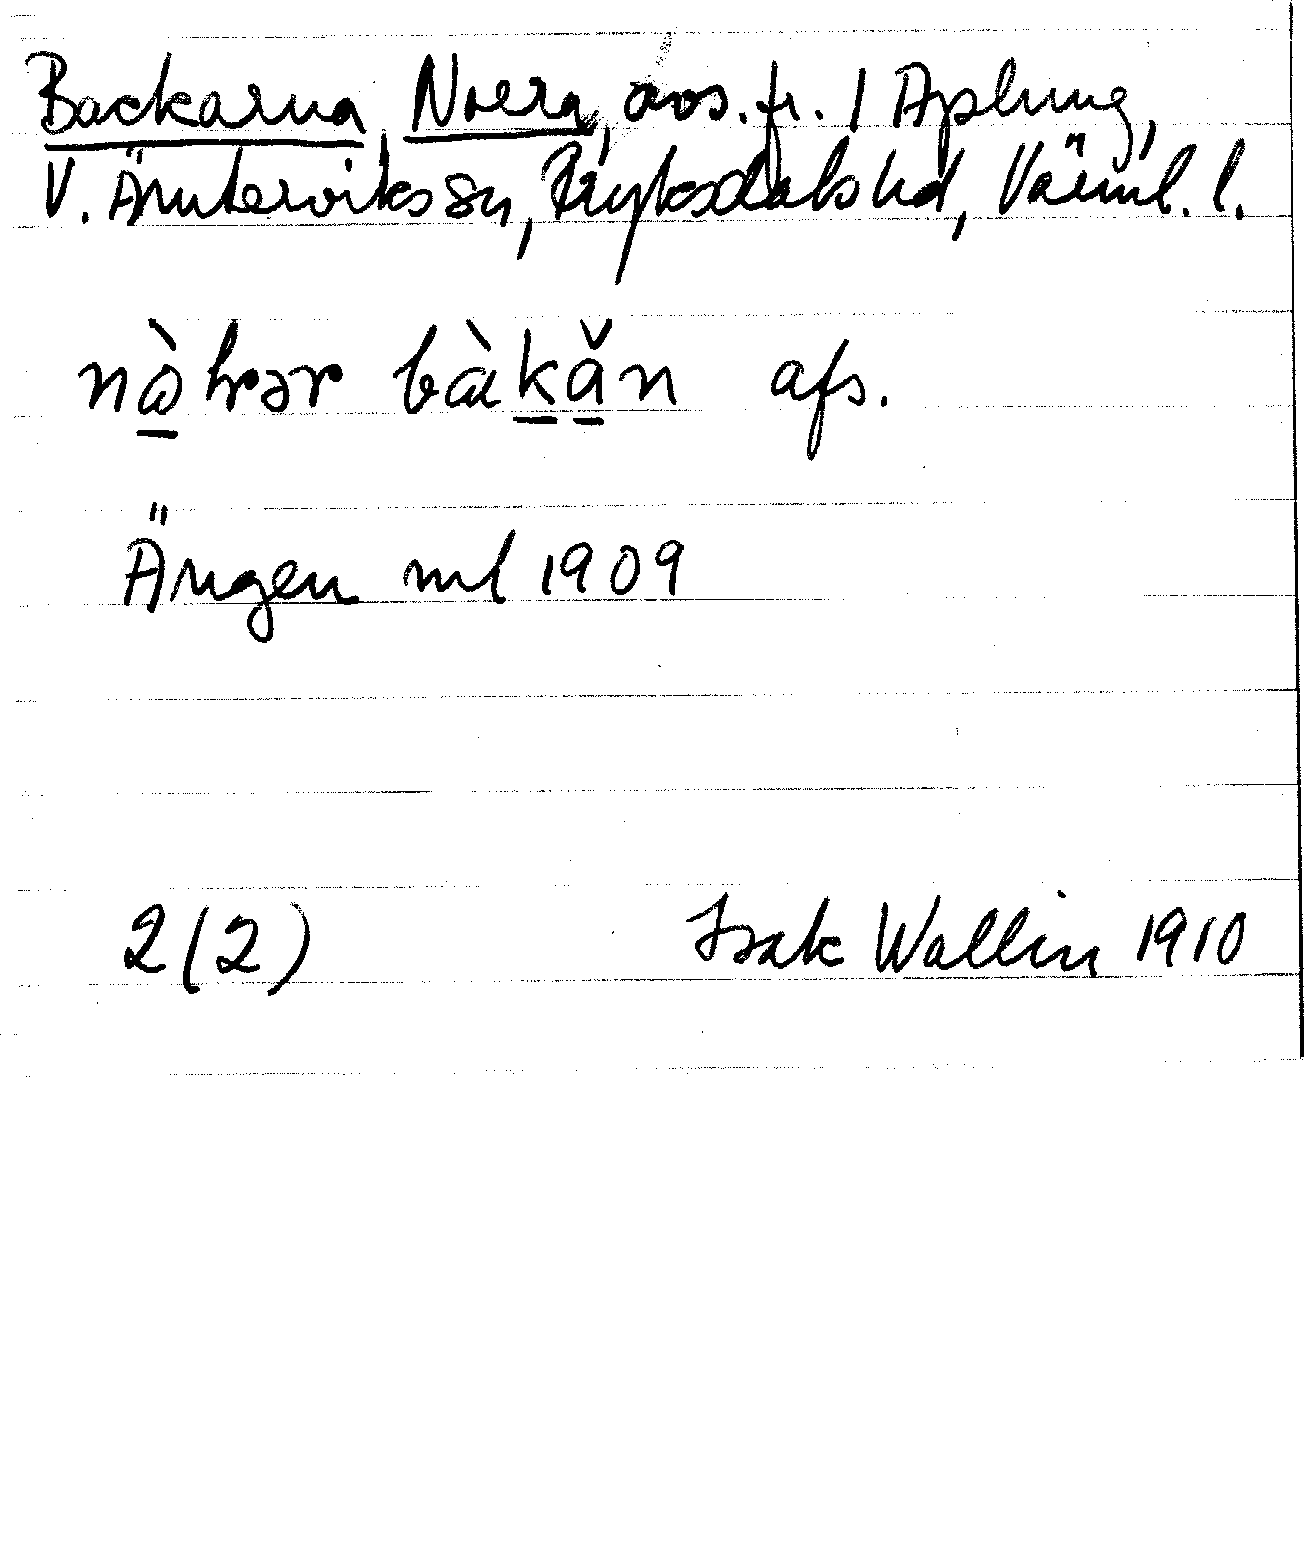 Backarna, Norra, avs. fr. 1 Aplung,
V. Ämterviks sn, Fryksdals hd, Värml. l.
nò̱hrər bàḵǎ̱n afs.
Ängen ml 1909
2(2) Isak Wallin 1910